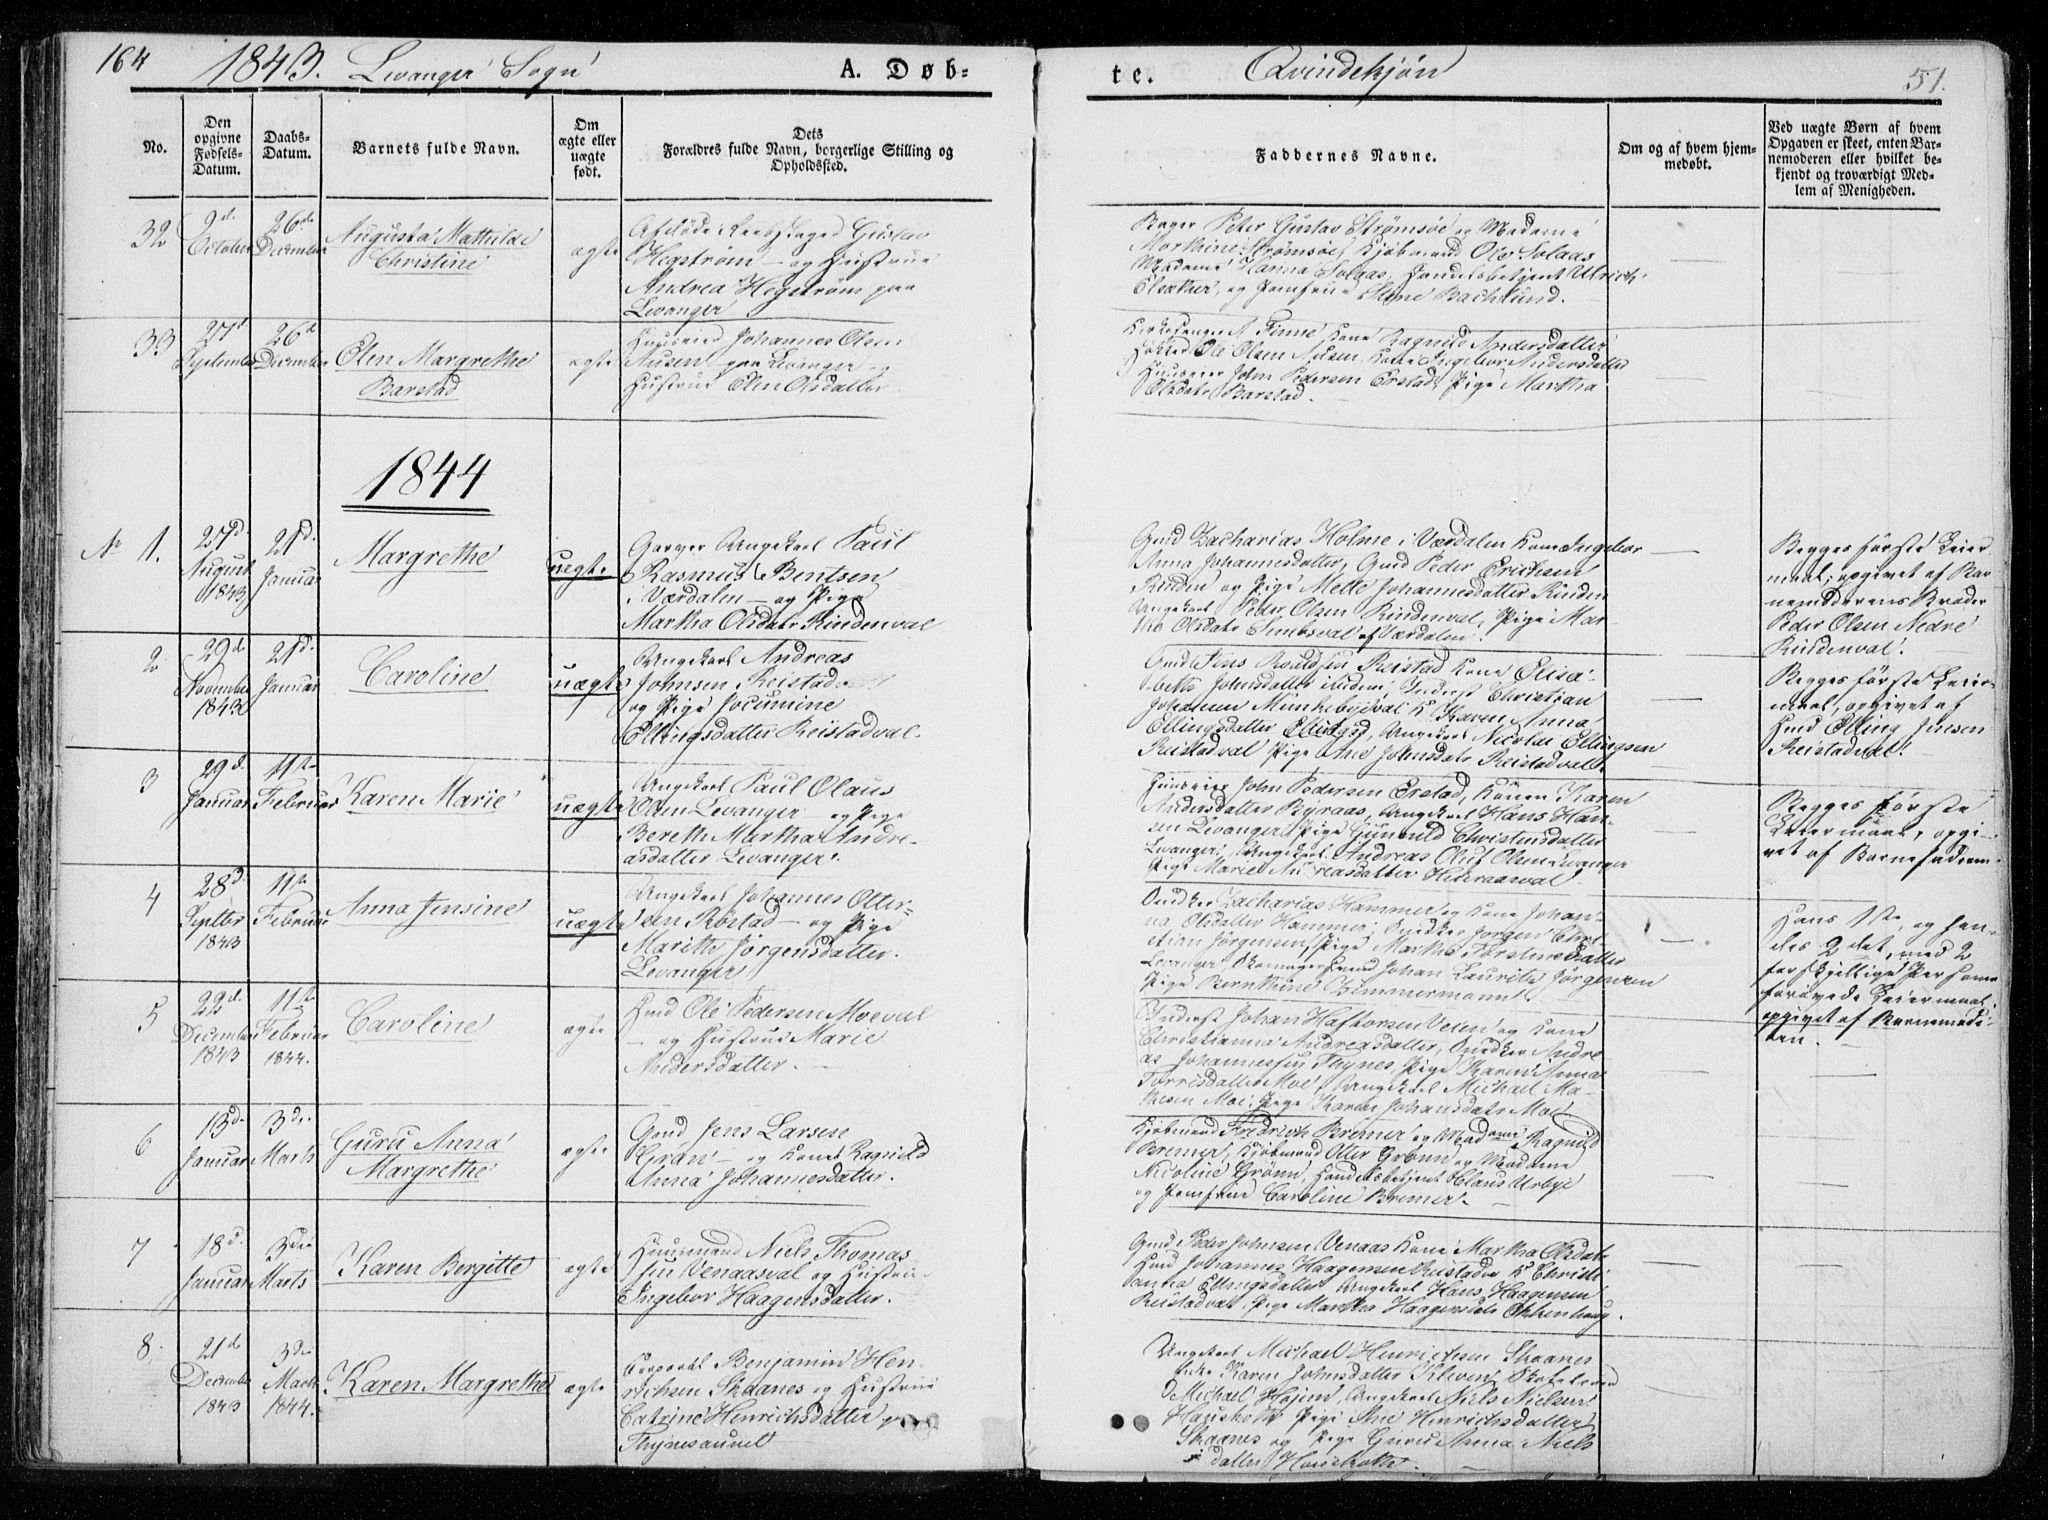 164 1843. Levanger Sogn A. Døb-
te. Qvindekjøn 51.
No.
Den opgivne Fødsels-Datum.
Daabs-Datum.
Barnets fulde Navn.
Om ægte eller uægte født.
Dets Forældres fulde Navn, borgerlige Stilling og Opholdssted.
Faddernes Navne.
Om og af hvem hjem-
medøbt.
Ved uægte Børn af hvem
Opgaven er skeet, enten Bar-
nemoderen eller hvilket be-
kjendt og troværdigt Med-
lem af Menigheden.
32
2d. October
26d. December
Augusta Mathilde
Christine
ægte
Gustav
Hegstrøm - og Hustrue
Andrea Hegstrøm paa
Levanger
Bager Peter Gustav Strømsøe og Madame
Strømsøe, Kjøbmand Ole Solaas
Madame Hanna Solaas, Handelsbetjent Ulrich
og Jomfrue Bachlund.
33
27d September
26d December
Elen Margrethe
Barstad
ægte
Huuseier Johannes Olsen
Ausen paa Levanger og
Hustrue Elen Olsdatter
Kirkesanger A Finne, Kone Ragnild Andersdatter
Ole Olsen Ausen, Kone Ingebor Andersdatter
Huuseier John Pedersen Erstad, Pige Martha
Olsdatr Barstad.
1844
No 1.
27d August 1843
21d. Januar
Margrethe
uægte
Garver Ungekarl Paul
Rasmus Bentsen
Værdalen - og Pige
Martha Olsdatr Rindenval
Gmd Zacharias Holme i Værdalen Kone Ingebor
Anna Johannesdatter, Gmd Peder Erichsen
Rinden og Pige Mette Johannesdatter Rinden
Ungekarl Peder Olsen Rindenval, Pige Mar-
the Olsdatr af Værdalen.
Begges første Leier
maal; opgivet af Bar
nemoderens Broder
Peder Olsen Nedre
Rindenval.
2
29d November 1843
21d. Januar
Caroline
uægte
Ungekarl Andreas
Johnsen Reistad
og Pige Jocumine
Ellingsdatter Reistadval.
Gmd Reistad Kone Elisa-
beth Johnsdatter ibidem, Inderst Christian
Johannesen Munkebyeval K Karen Anna
Ellingsdatter Ungekarl Nicolai Ellingsen
Reistadval Pige Ane Johnsdatr Reistadval.
Begges første Leier-
maal, opgivet af
Hmd Elling Jensen
Reistadval.
3
29d. Januar
11te Februar
Karen Marie
uægte
Ungekarl Paul Olaus
Olsen Levanger - og Pige
Bereth Martha Andre-
asdatter Levanger.
Huuseier John Pedersen Erstad, Konen Karen
Andersdatter Byraas, Ungekarl Hans Han-
sen Levanger Pige Gunnild Christensdatter
Levanger, Ungekarl Andreas Oluf Olsen Levanger
Pige Mariel Andreasdatter
Begges første
Leiermaal, opgi-
vet af Barnefaderen
4
28d. Septbr 1843
11te Februar
Anna Jensine
uægte
Ungekarl Johannes Otter-
sen Røstad - og Pige
Marith Jørgensdatter.
Levanger
Snedker Zacharias Hammer og Kone Johan-
na Olsdatter Hammer, Snedker Jørgen Chri-
stian Jørgensen, Pige Martha Torstensdatter
Levanger Skomagersvend Johan Laurits Jørgensen
Pige Bernthine Zimmermann.
Hans 1ste, og hen-
des 2det, med 2
forskjellige Personer
forøvede Leiermaal.
opgivet af Barnemode-
ren.
5
22d. December 1843
11te Februar 1844.
Caroline
ægte
Hmd Ole Pedersen Moeval
- og Hustrue Marie
Andersdatter.
Inderst Johan Haftorsen og Kone
Christianna Andreasdatter, Snedker Andre
as Johannessen Thynes, Pige Karen Anna
Torrisdatter Moe, Ungekarl Michael Ma-
thesen Moe, Pige Karen Johansdatr Moe.
6
13d. Januar
3die Marts
Guru Anna
Margrethe
ægte
Gmd Jens Larsen
Gran - og Kone Ragnild
Anna Johannesdatter.
Kjøbmand Fredrich Bremer og Madame Ragnild
Bremer, Kjøbmand Otter Grønn og Madame
Nicoline Grønn, Handelsbetjent Claus Urbye
og Jomfrue Caroline Bremer.
7
18d. Januar
3die Marts
Karen Bergitte
ægte
Huusmand Niels Thomas
sen Venaasval og Hustrue
Ingebor Haagensdatter.
Gmd Peder Johnsen Venaas Kone Martha Olsdatr
Hmd Johannes Haagensen Reistadv K Christi
anna Ellingsdatter Ungekarl Hans Haagensen
Reistadval, Pige Martha Haagensdatr Okkenhaug.
8.
21d. December 1843
3die Marts 1844.
Karen Margrethe
ægte
Corporal Benjamin Hen-
richsen Skaanes og Hustrue
Catrine Henrichsdatter paa
Thynesaunet
Ungekarl Michael Henrichsen Skaanes
Enke Karen Johnsdatter Kleven,
Michael Hojem, Ungekarl Niels Nielsen
Pige Ane Henrichsdatter
Skaanes og Pige Guru Anna Niels
datter